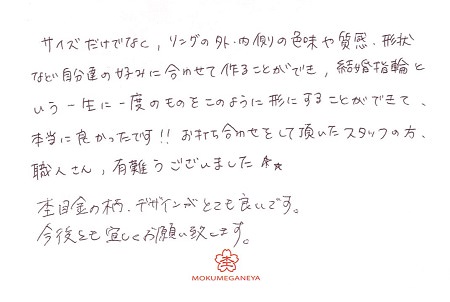 サイズだけでなく,リングの外・内側の色味や質感・形状
など自分達の好みに合わせて作ることができ,結婚指輪と
いう一生に一度のものをこのように形にすることができて、
本当に良かったです!!お打ち合わせをして頂いたスタッフの方、
職人さん,有難うございました
杢目金の柄、デザインがとても良いです。
今後とも宜しくお願い致します。
杢
MOKUMEGANEYA